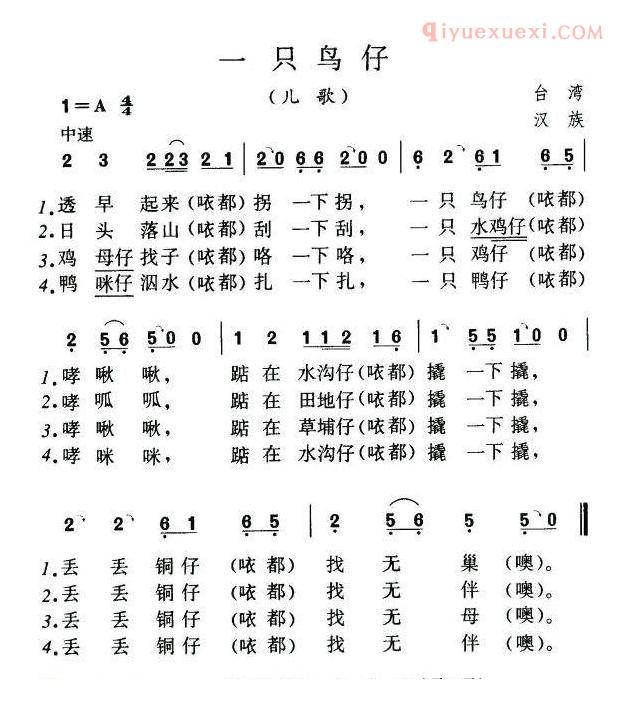 qiyuexuexi.com
一 只 鸟 仔
（儿 歌）
1=A 4/4
台 湾
汉 族
中速
2 3 2 2 3 2 1 | 2 0 6 6 2 0 0 | 6 2 6 1 6 5 |
1. 透 早 起来（咴都）拐 一下拐， 一 只 鸟仔（咴都）
2. 日 头 落山（咴都）刮 一下刮， 一 只 水鸡仔（咴都）
3. 鸡 母仔 找子（咴都）咯 一下咯， 一 只 鸡仔（咴都）
4. 鸭 咪仔 泅水（咴都）扎 一下扎， 一 只 鸭仔（咴都）
2 5 6 5 0 0 | 1 2 1 1 2 1 6 | 1 5 5 1 0 0 |
1. 哮 啾 啾， 踮 在 水沟仔（咴都）撬 一下撬，
2. 哮 呱 呱， 踮 在 田地仔（咴都）撬 一下撬，
3. 哮 啾 啾， 踮 在 草埔仔（咴都）撬 一下撬，
4. 哮 咪 咪， 踮 在 水沟仔（咴都）撬 一下撬，
2 2 6 1 6 5 | 2 5 6 5 5 0 ‖
1. 丢 丢 铜仔（咴都）找 无 巢（噢）。
2. 丢 丢 铜仔（咴都）找 无 伴（噢）。
3. 丢 丢 铜仔（咴都）找 无 母（噢）。
4. 丢 丢 铜仔（咴都）找 无 伴（噢）。